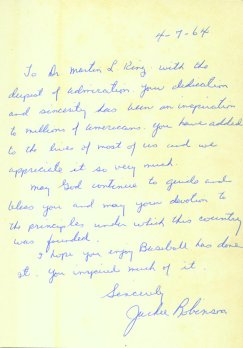 4-7-64
To Dr Martin L King with the
deepest of admiration. Your dedication
and sincerity has been an inspiration
to millions of americans. You have added
to the lives of most of us and we
appreciate it so very much.
May God continue to guide and
bless you and may your devotion to
the principles under which this country
was founded.
I hope you enjoy Baseball has done
it. You inspired much of it
Sincerely
Jackie Robinson